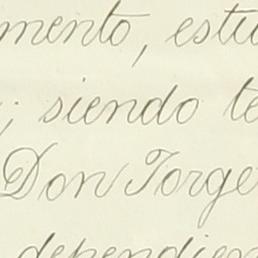 mento, estu
; siendo te
Don Jorge
dependien